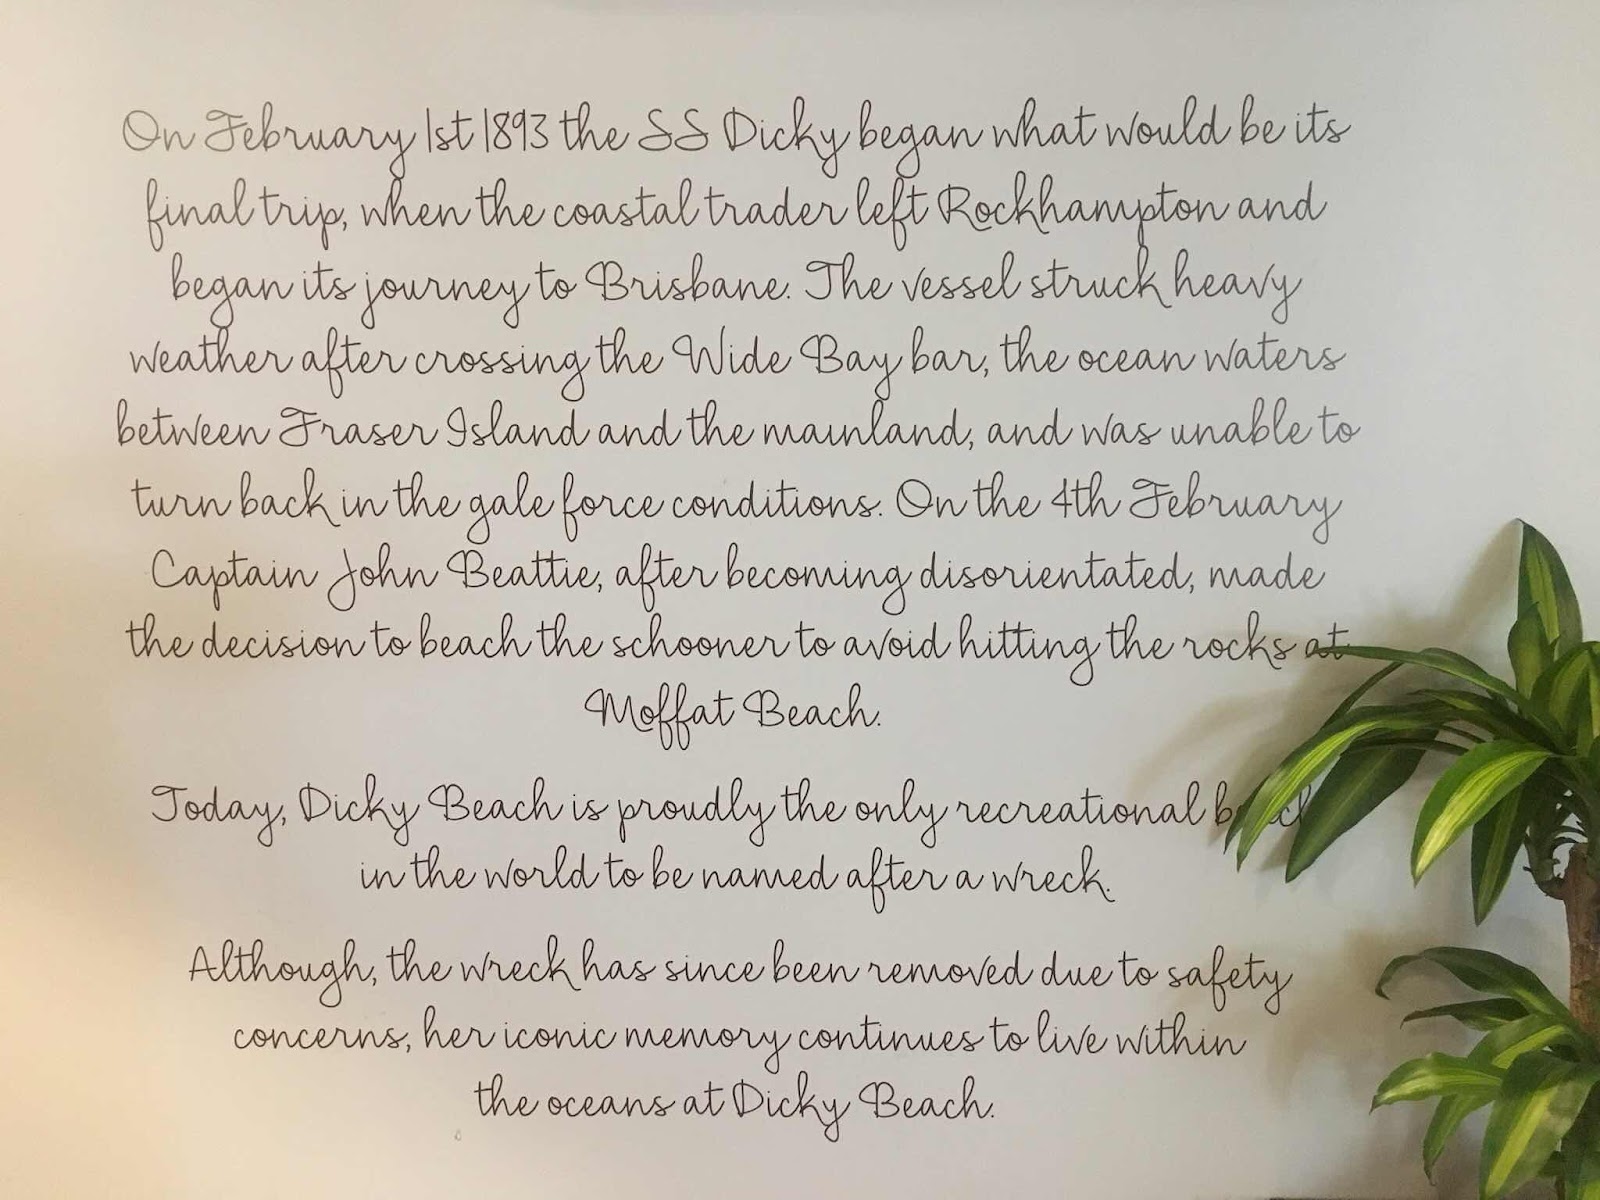 On February 1st 1893 the SS Dicky began what would be its
final trip, when the coastal trader left Rockhampton and
began its journey to Brisbane. The vessel struck heavy
weather after crossing the Wide Bay bar, the ocean waters
between Fraser Island and the mainland, and was unable to
turn back in the gale force conditions. On the 4th February
Captain John Beattie, after becoming disorientated, made
the decision to beach the schooner to avoid hitting the rocks at
Moffat Beach.
Today, Dicky Beach is proudly the only recreational beach
in the world to be named after a wreck.
Although, the wreck has since been removed due to safety
concerns, her iconic memory continues to live within
the oceans at Dicky Beach.